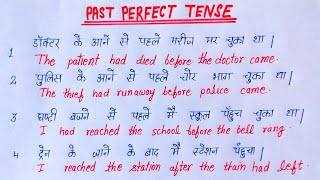 PAST PERFECT TENSE
डॉक्टर के आने से पहले मरीज मर चुका था |
1 The patient had died before the doctor came.
पुलिस के आने से पहले चोर भाग चुका था |
2 The thief had runaway before police came.
3 घण्टी बजने से पहले मै स्कूल पहुँच चुका था |
I had reached the school before the bell rang.
4 ट्रेन के जाने के बाद मै स्टेशन पहुँचा |
I reached the station after the train had left.